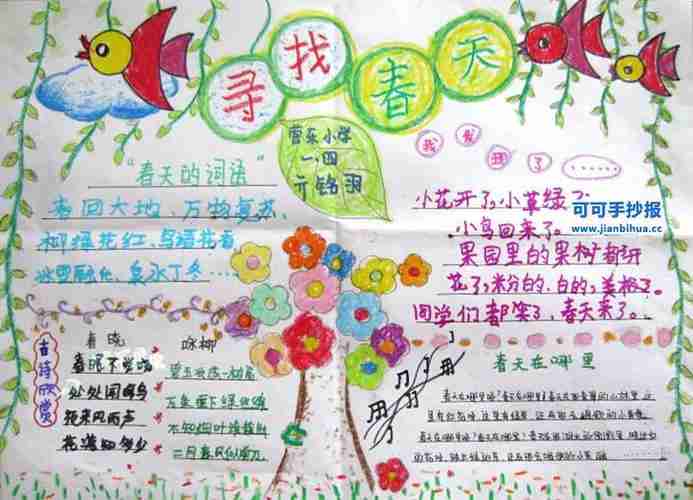 寻找春天
营东小学
一.四
亓铭羽
"春天的词语"
春回大地、万物复苏、
柳绿花红、鸟语花香
冰雪融化、泉水丁冬....
我发现了
小花开了,小草绿了
小鸟回来了。
果园里的果树都开
花了,粉的、白的,美极了。
同学们都笑了,春天来了。
可可手抄报
www.jianbihua.cc
古诗欣赏
春晓
春眠不觉晓
处处闻啼鸟
夜来风雨声
花落知多少
咏柳
碧玉妆成一树高
万条垂下绿丝绦
不知细叶谁裁出
二月春风似剪刀
春天在哪里
春天在哪里呀?春天在哪里?